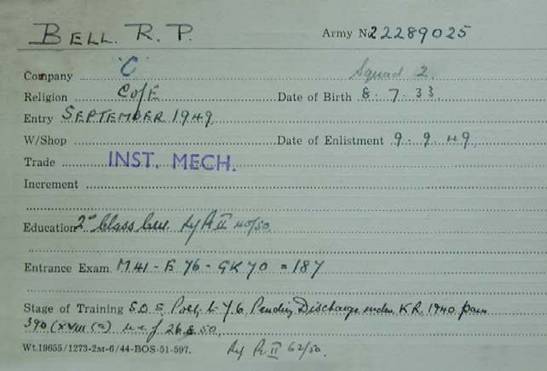 BELL. R. P. Army No 22289025
Company "C" Squad 2.
Religion CofE Date of Birth 8. 7. 33
Entry SEPTEMBER 1949
W/Shop Date of Enlistment 9. 9. 49
Trade INST. MECH.
Increment
Education 2nd Class 40/50.
Entrance Exam M41 - E 76 - GK 70 = 187
Stage of Training S.D.E. Pending Discharge under K.R. 1940 para
390 (xviii) w.e.f 26.8.50.
Wt.19655/1273-2M-6/44-BOS-51-597. Pt. II 62/50.